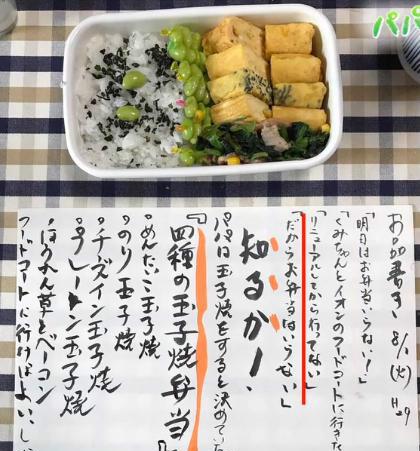 パパ
お品書き 8/1(火) H29
「明日はお弁当いらない!」
「くみちゃんとイオンのフードコートに行きた
「リニューアルしてから行ってない」
「だからお弁当はいらない」
知るかー!
パパは玉子焼をすると決めていた
『四種の玉子焼弁当』
°めんたいこ玉子焼
°のり玉子焼
°チーズイン玉子焼
°プレーン玉子焼
°ほうれん草とベーコン
フードコートに行けばよい…し